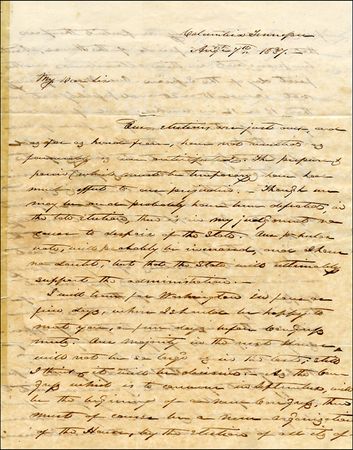 Columbia Tennessee
Augt. 7th 1837.
My Dear Sir
Our elections are just over, and
as far as heard from, have not resulted as
favourably as we anticipated. The pressure &
panic (which must be temporary) have had
much effect to our prejudice. Though we
may be and probably have been defeated in
the late elections, there is in my judgment no
cause to despair of the State. Our popular
vote, will probably be increased, and I have
no doubt, but that the State will ultimately
support the administration.
I will leave for Washington in four or
five days, where I should be happy to
meet you, a few days before Congress
meets. Our majority in the next House
will not be as large as in the last, still
I think it will be decisive. As the Con-
gress which is to convene in September, will
be the beginning of a new Congress, there
must of course be a new organization
of the House, by the election of all its of